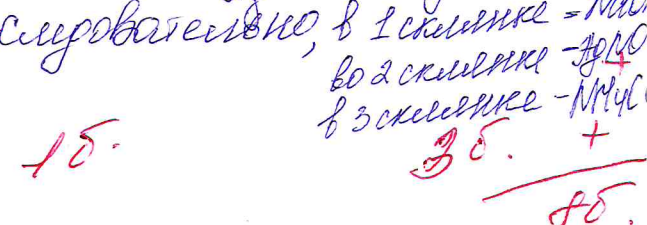 следовательно, в 1 склянке = NaO
во 2 склянке - AgNO
+
в 3 склянке - NH4C
1 б. 3 б. +
8 б.